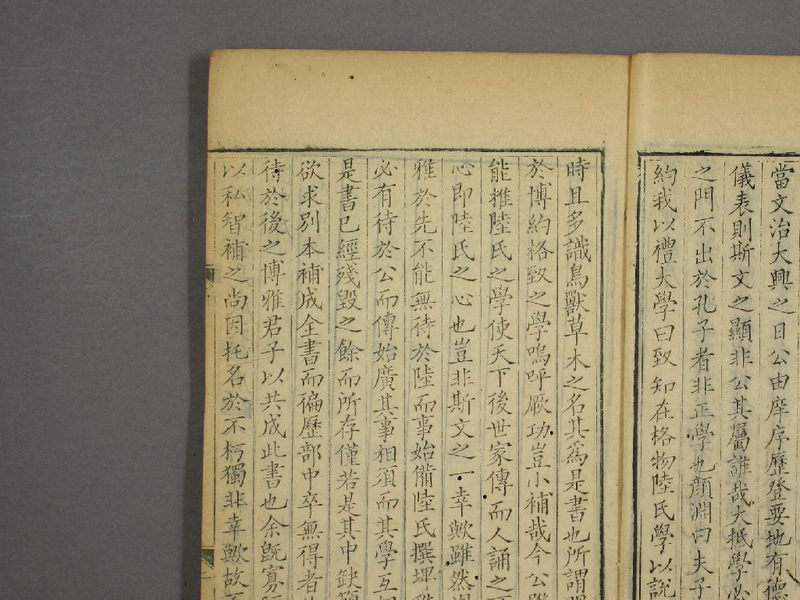 當文治大興之日公由庠序歷登要地有德
儀表則斯文之顯非公其屬誰哉大抵學必
之門不出於孔子者非正學也顏淵曰夫子
約我以禮大學曰致知在格物陸氏學以說
時且多識鳥獸草木之名其為是書也所謂
於博約格致之學嗚呼厥功豈小補哉今公
能推陸氏之學使天下後世家傳而人誦之
心即陸氏之心也豈非斯文之一幸歟雖然
雅於先不能無待於陸而事始備陸氏撰埤
必有待於公而傳始廣其事相須而其學互
是書已經殘毀之餘而所存僅若是其中缺
欲求別本補成全書而徧歷部中卒無得者
待於後之博雅君子以共成此書也余旣寡
以私智補之尚因托名於不朽獨非幸歟故